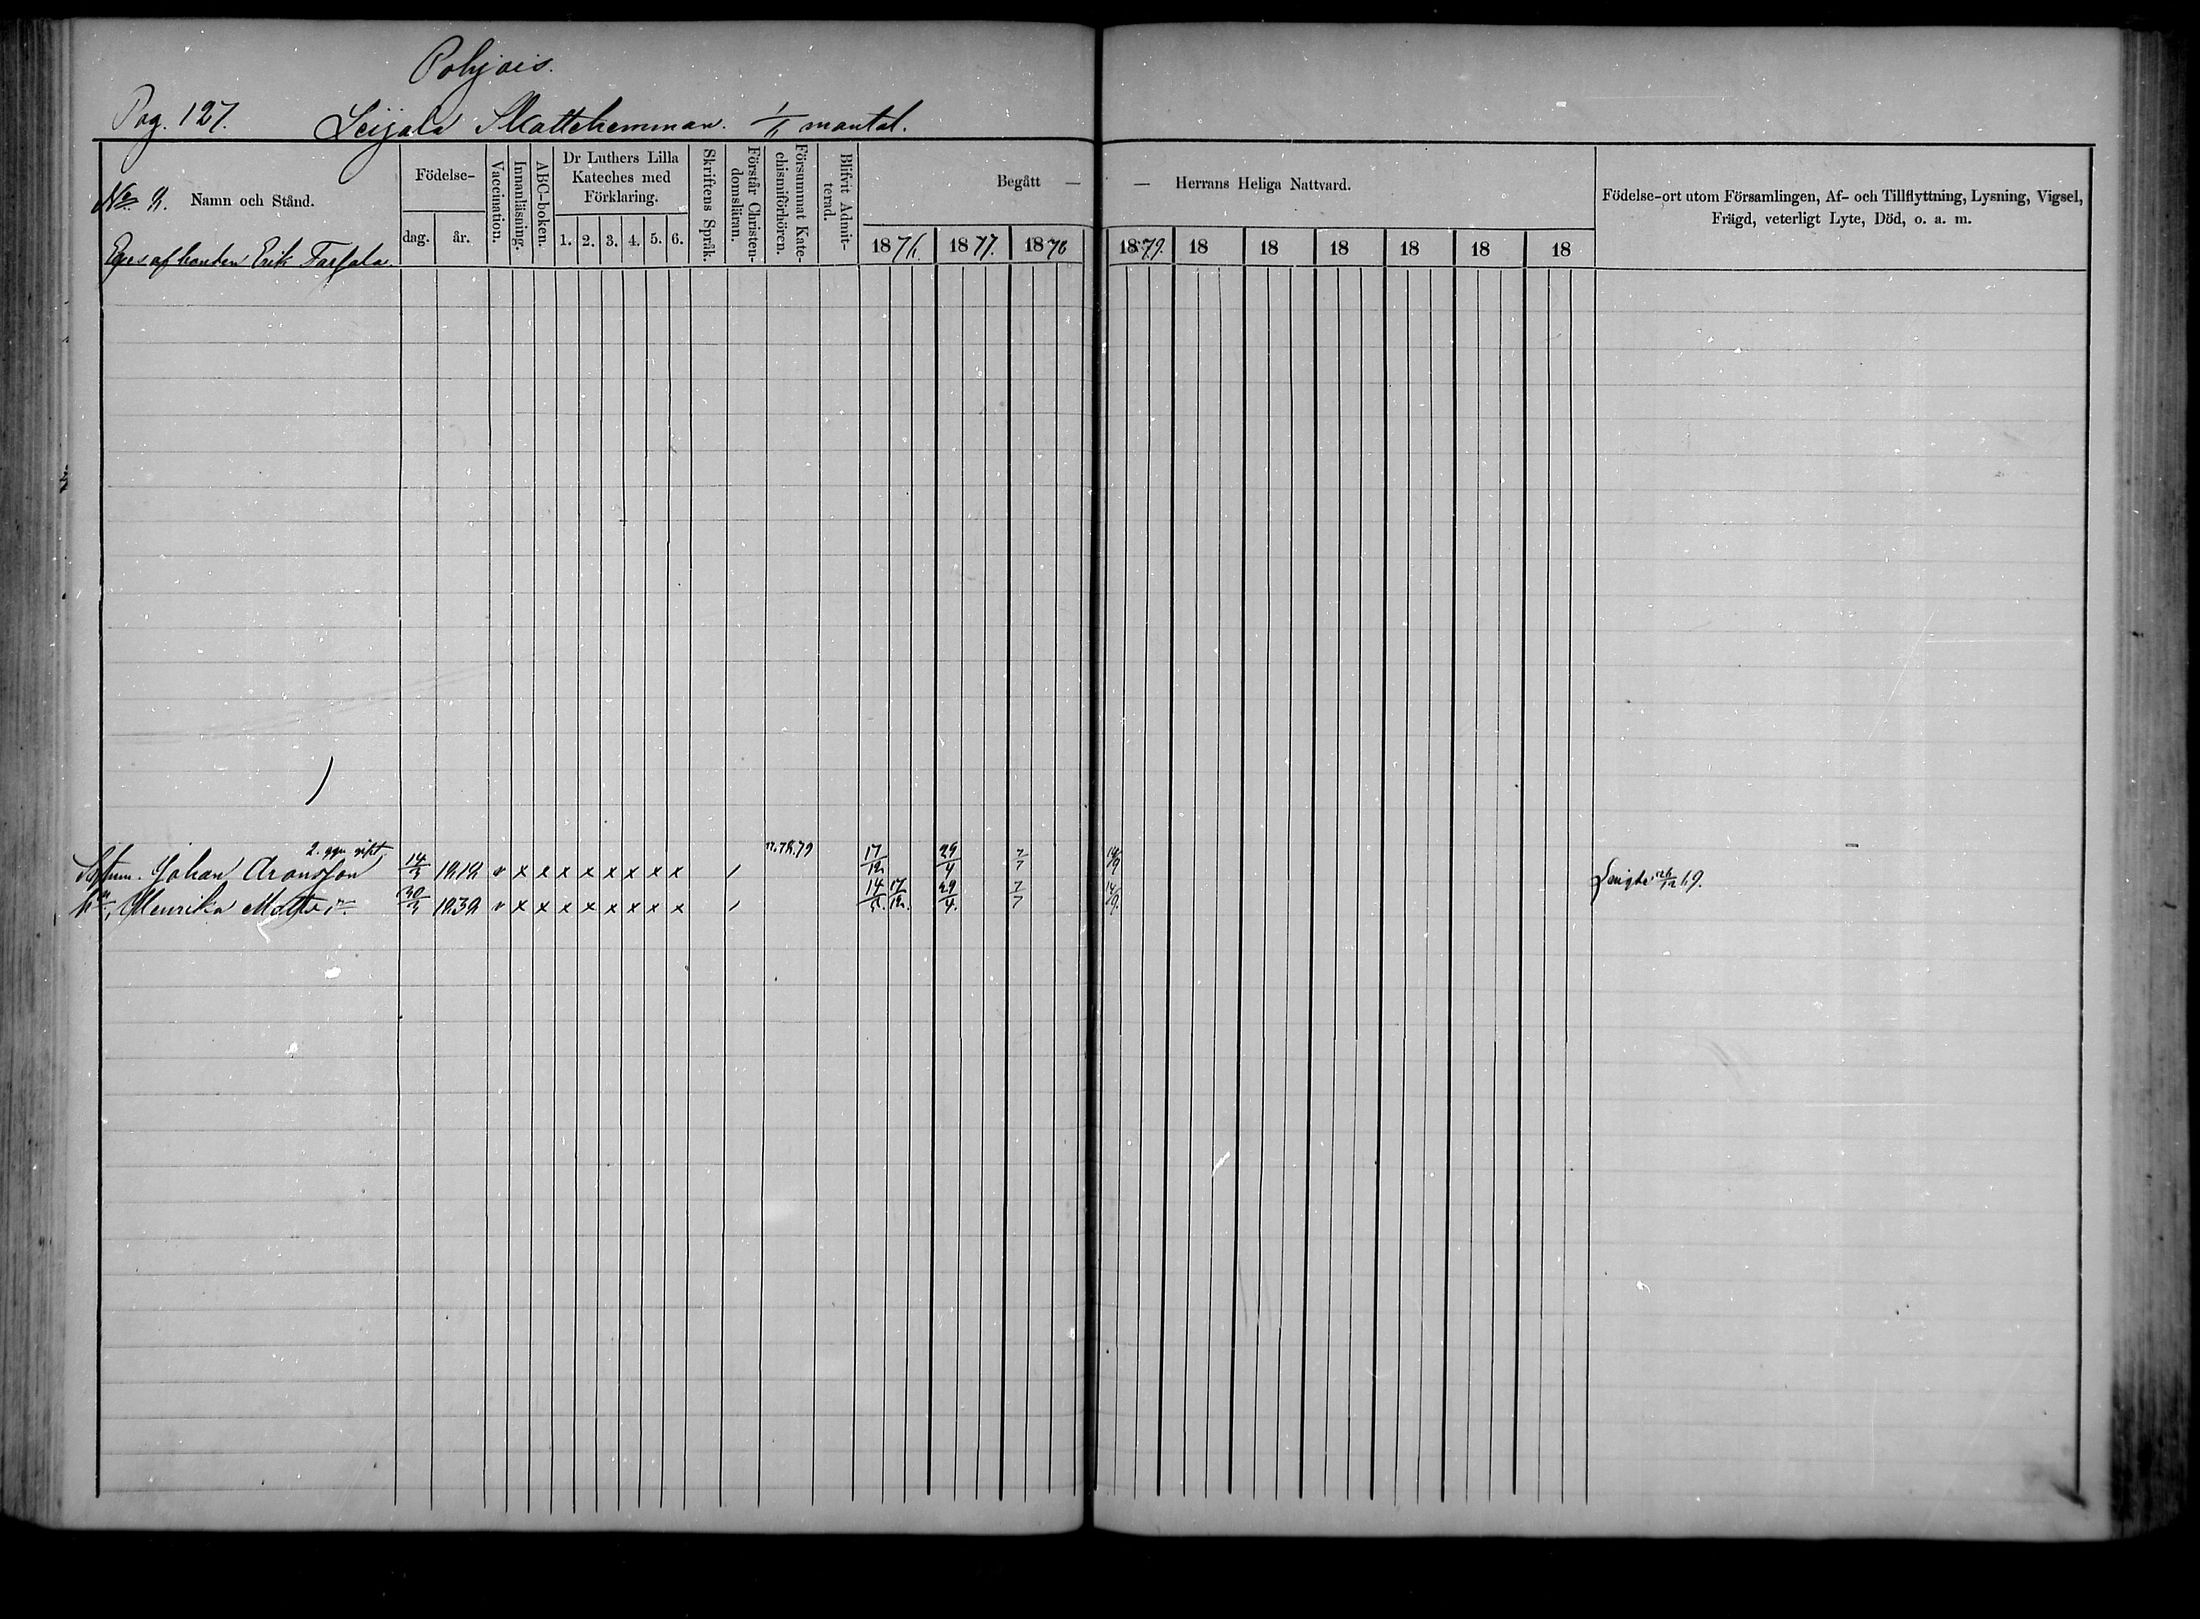 Pohjois.
Pag. 127. Leijala Skattehemman. 1/6 mantal.
Namn och Stånd.
Födelse-
dag. år.
Vaccination.
Innanläsning.
ABC-boken.
Dr Luthers Lilla
Kateches med
Förklaring.
1. 2. 3. 4. 5. 6.
Skriftens Språk.
Förstår Christen-
domsläran.
Försummat Kate-
chismiförhören.
Blifvit Admit-
terad.
Begått — — Herrans Heliga Nattvard.
1876. 1877. 1878 1879. 18 18 18 18 18 18
Födelse-ort utom Församlingen, Af- och Tillflyttning, Lysning, Vigsel,
Frägd, veterligt Lyte, Död, o. a. m.
No 2.
Eges af bonden Erik
2. ggn gift 77.78.79
Johan Aronsson 14/3 1818 v x x x x x x x x / 17/12 29/4 7/7 14/9
Henrika Mattsdr. 30/3 1838 v x x x x x x x x / 14/5. 17/12. 29/4. 7/7 14/9.